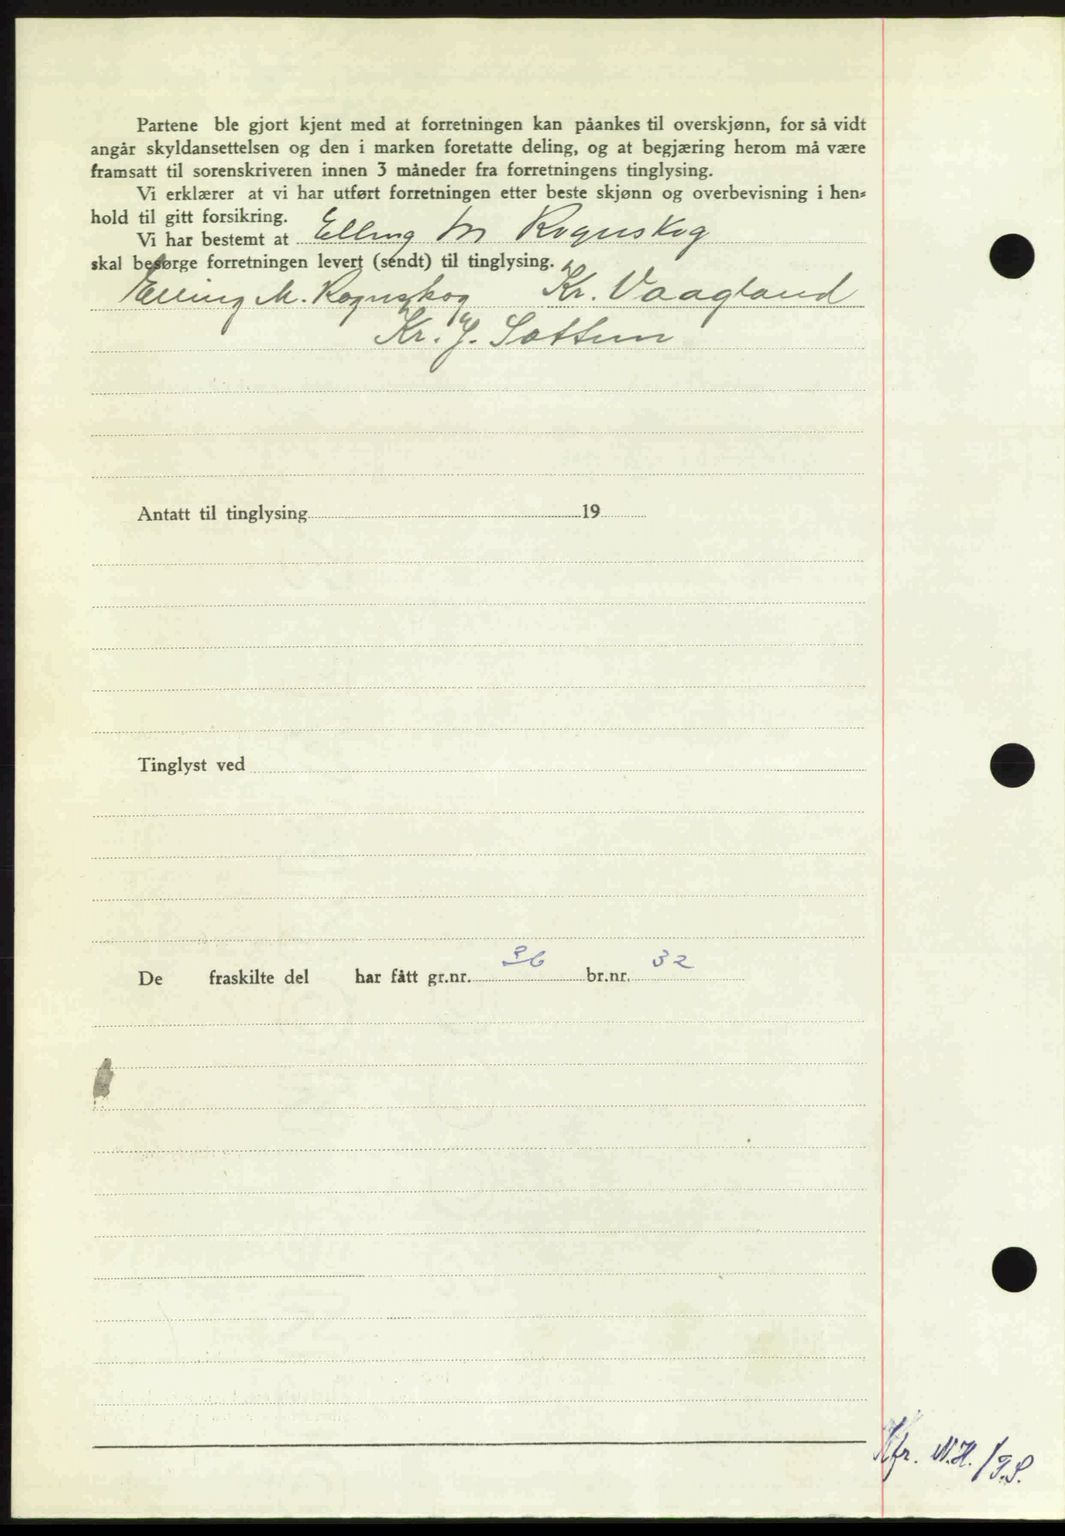 Partene ble gjort kjent med at forretningen kan påankes til overskjønn, for så vidt
angår skyldansettelsen og den i marken foretatte deling, og at begjæring herom må være
framsatt til sorenskriveren innen 3 måneder fra forretningens tinglysing.
Vi erklærer at vi har utført forretningen etter beste skjønn og overbevisning i hen=
hold til gitt forsikring.
Vi har bestemt at Elling M Rognskog
skal besørge forretningen levert (sendt) til tinglysing.
Elling M. Rognskog Kr. Vaagland
Kr. J. Sættem
Antatt til tinglysing 19
Tinglyst ved
De fraskilte del har fått gr.nr. 36 br.nr. 32
Kfr. N.H. / P.S.